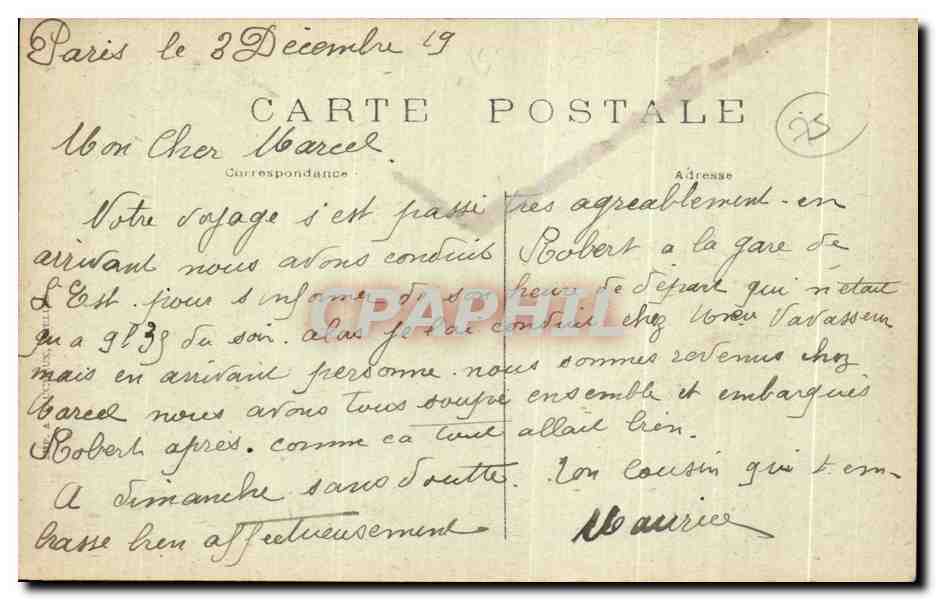 Paris le 3 Décembre 19
CARTE POSTALE
25
Mon Cher Marcel.
Correspondance
Adresse
Votre voyage s'est passé très agreablement - en
arrivant nous avons conduit Robert a la gare de
L'Est. pour s'informer de son heure de départ qui n'était
qu a 9h 35 du soir. alors je l'ai conduit chez Mr Vavasseur
mais en arrivant personne. nous sommes revenus chez
Marcel nous avons tous soupé ensemble et embarqués
Robert après. comme ca tout allait bien.
A dimanche sans doutte. Ton Cousin qui t'em-
brasse bien affectueusement
Maurice
CPAPHIL